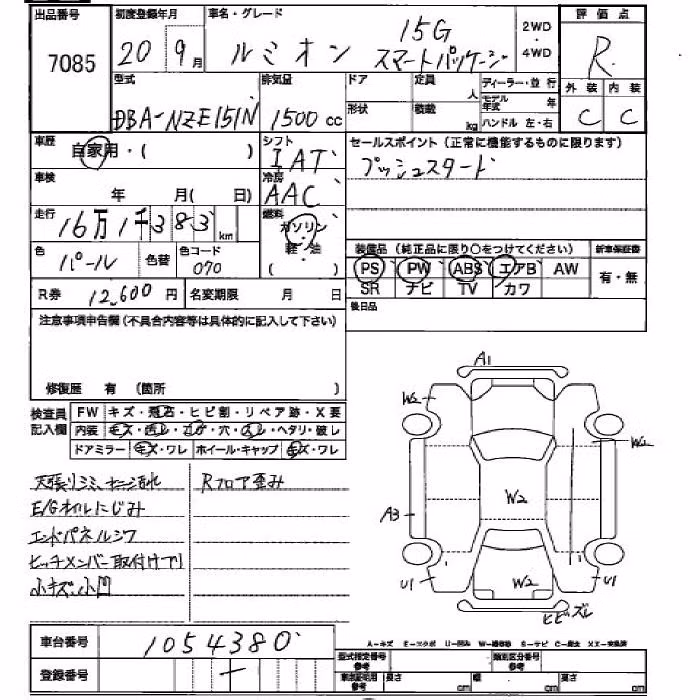 出品番号 初度登録年月 車名・グレード 評価点
7085 20 9月 ルミオン 15G スマートパッケージ 2WD・4WD R
型式 排気量 ドア 定員 人 ディーラー・並行 外装 内装
DBA-NZE151N 1500cc 形状 積載 kg モデル年式 年 ハンドル 左・右 C C
車歴 自家用・( ) シフト IAT セールスポイント(正常に機能するものに限ります)
車検 年 月( 日) 冷房 AAC プッシュスタート
走行 16万1千383 km 燃料 ガソリン・軽・油 ( )
色 パール 色替 色コード 070 装備品(純正品に限り○をつけてください) 新車保証書
PS PW ABS エアB AW 有・無
R券 12,600円 名変期限 月 日 SR ナビ TV カワ
注意事項申告欄(不具合内容等は具体的に記入して下さい) 後日品
修復歴 有 (箇所 )
検査員記入欄 FW キズ・飛石・ヒビ割・リペア跡・X要
内装 キズ・汚レ・コゲ・穴・スレ・ヘタリ・破レ
ドアミラー キズ・ワレ ホイール・キャップ キズ・ワレ
天張りシミ 汚れ Rフロア歪み
E/Gオイルにじみ
エンドパネルシワ
ヒッチメンバー取付け有り
小キズ、小凹
A1
W2
W2
W2
A3
W2
U1 U1
ヒビ・ズレ
車台番号 1054380
登録番号 ー
A-キズ E-エクボ U-凹み W-補修跡 S-サビ C-腐食 XX-交換済
型式指定番号 参考 類別区分番号 参考
長さ cm 幅 cm 高さ cm